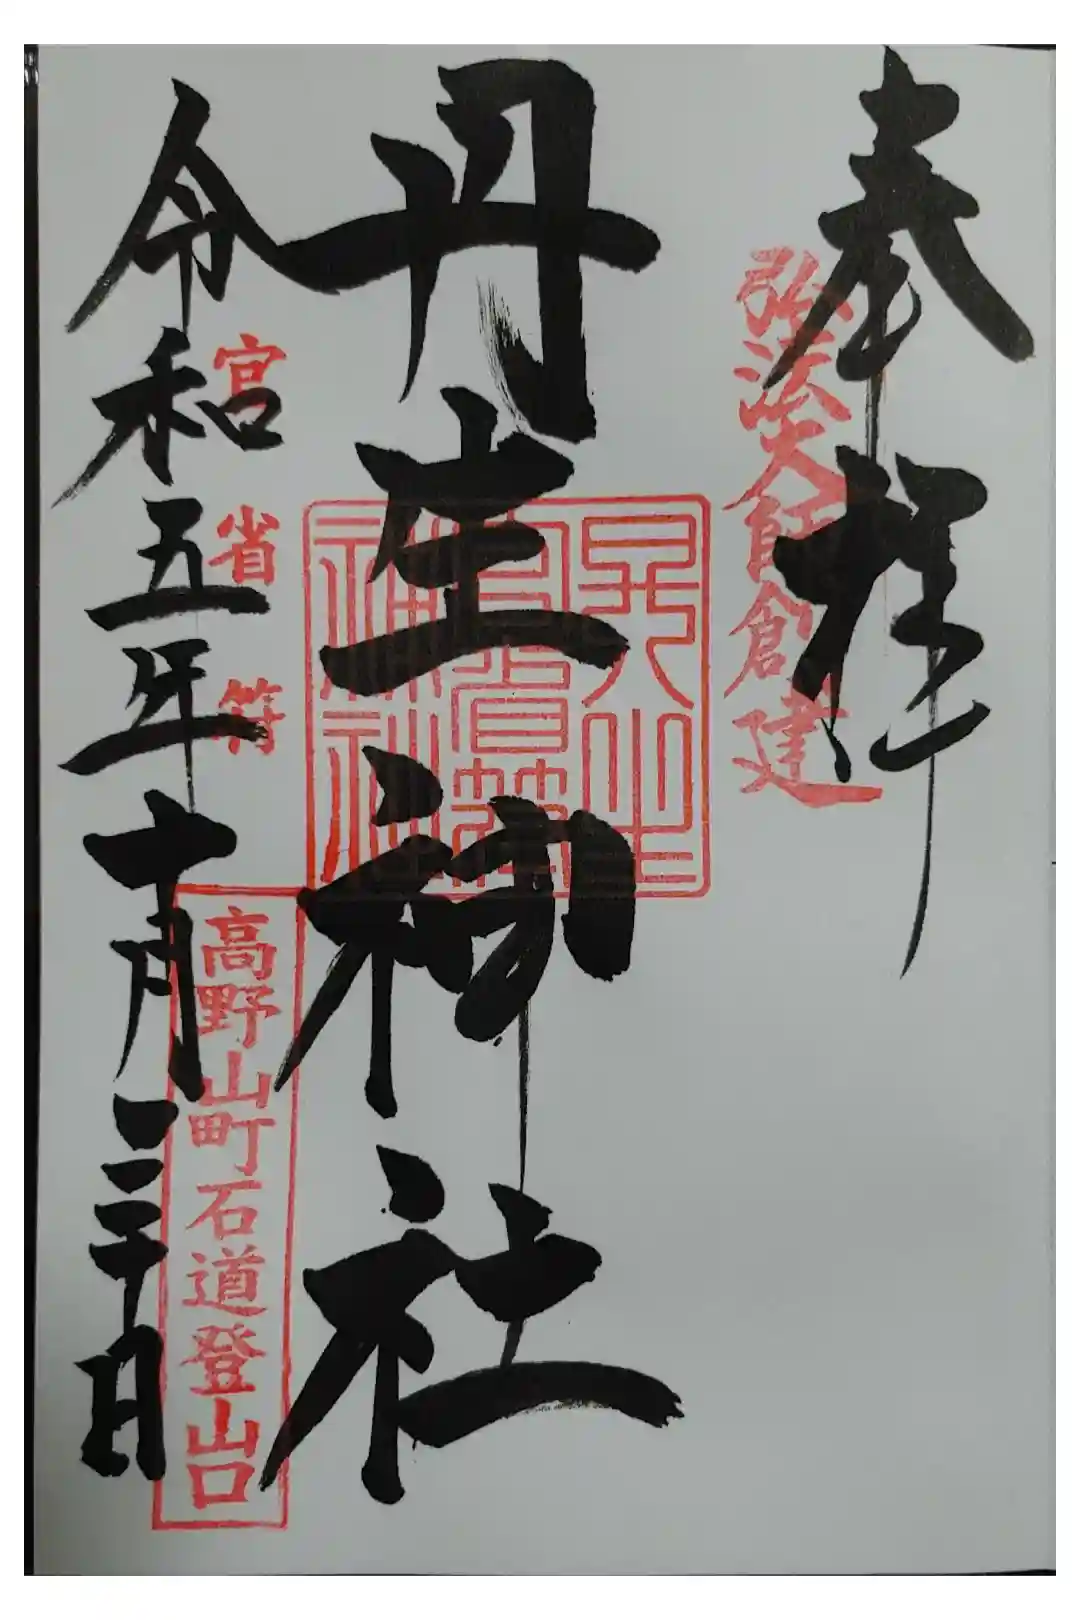 奉拝
弘法大師創建
丹生神社
官省符
神社
官省符
令和五年十月三十日
高野山町石道登山口